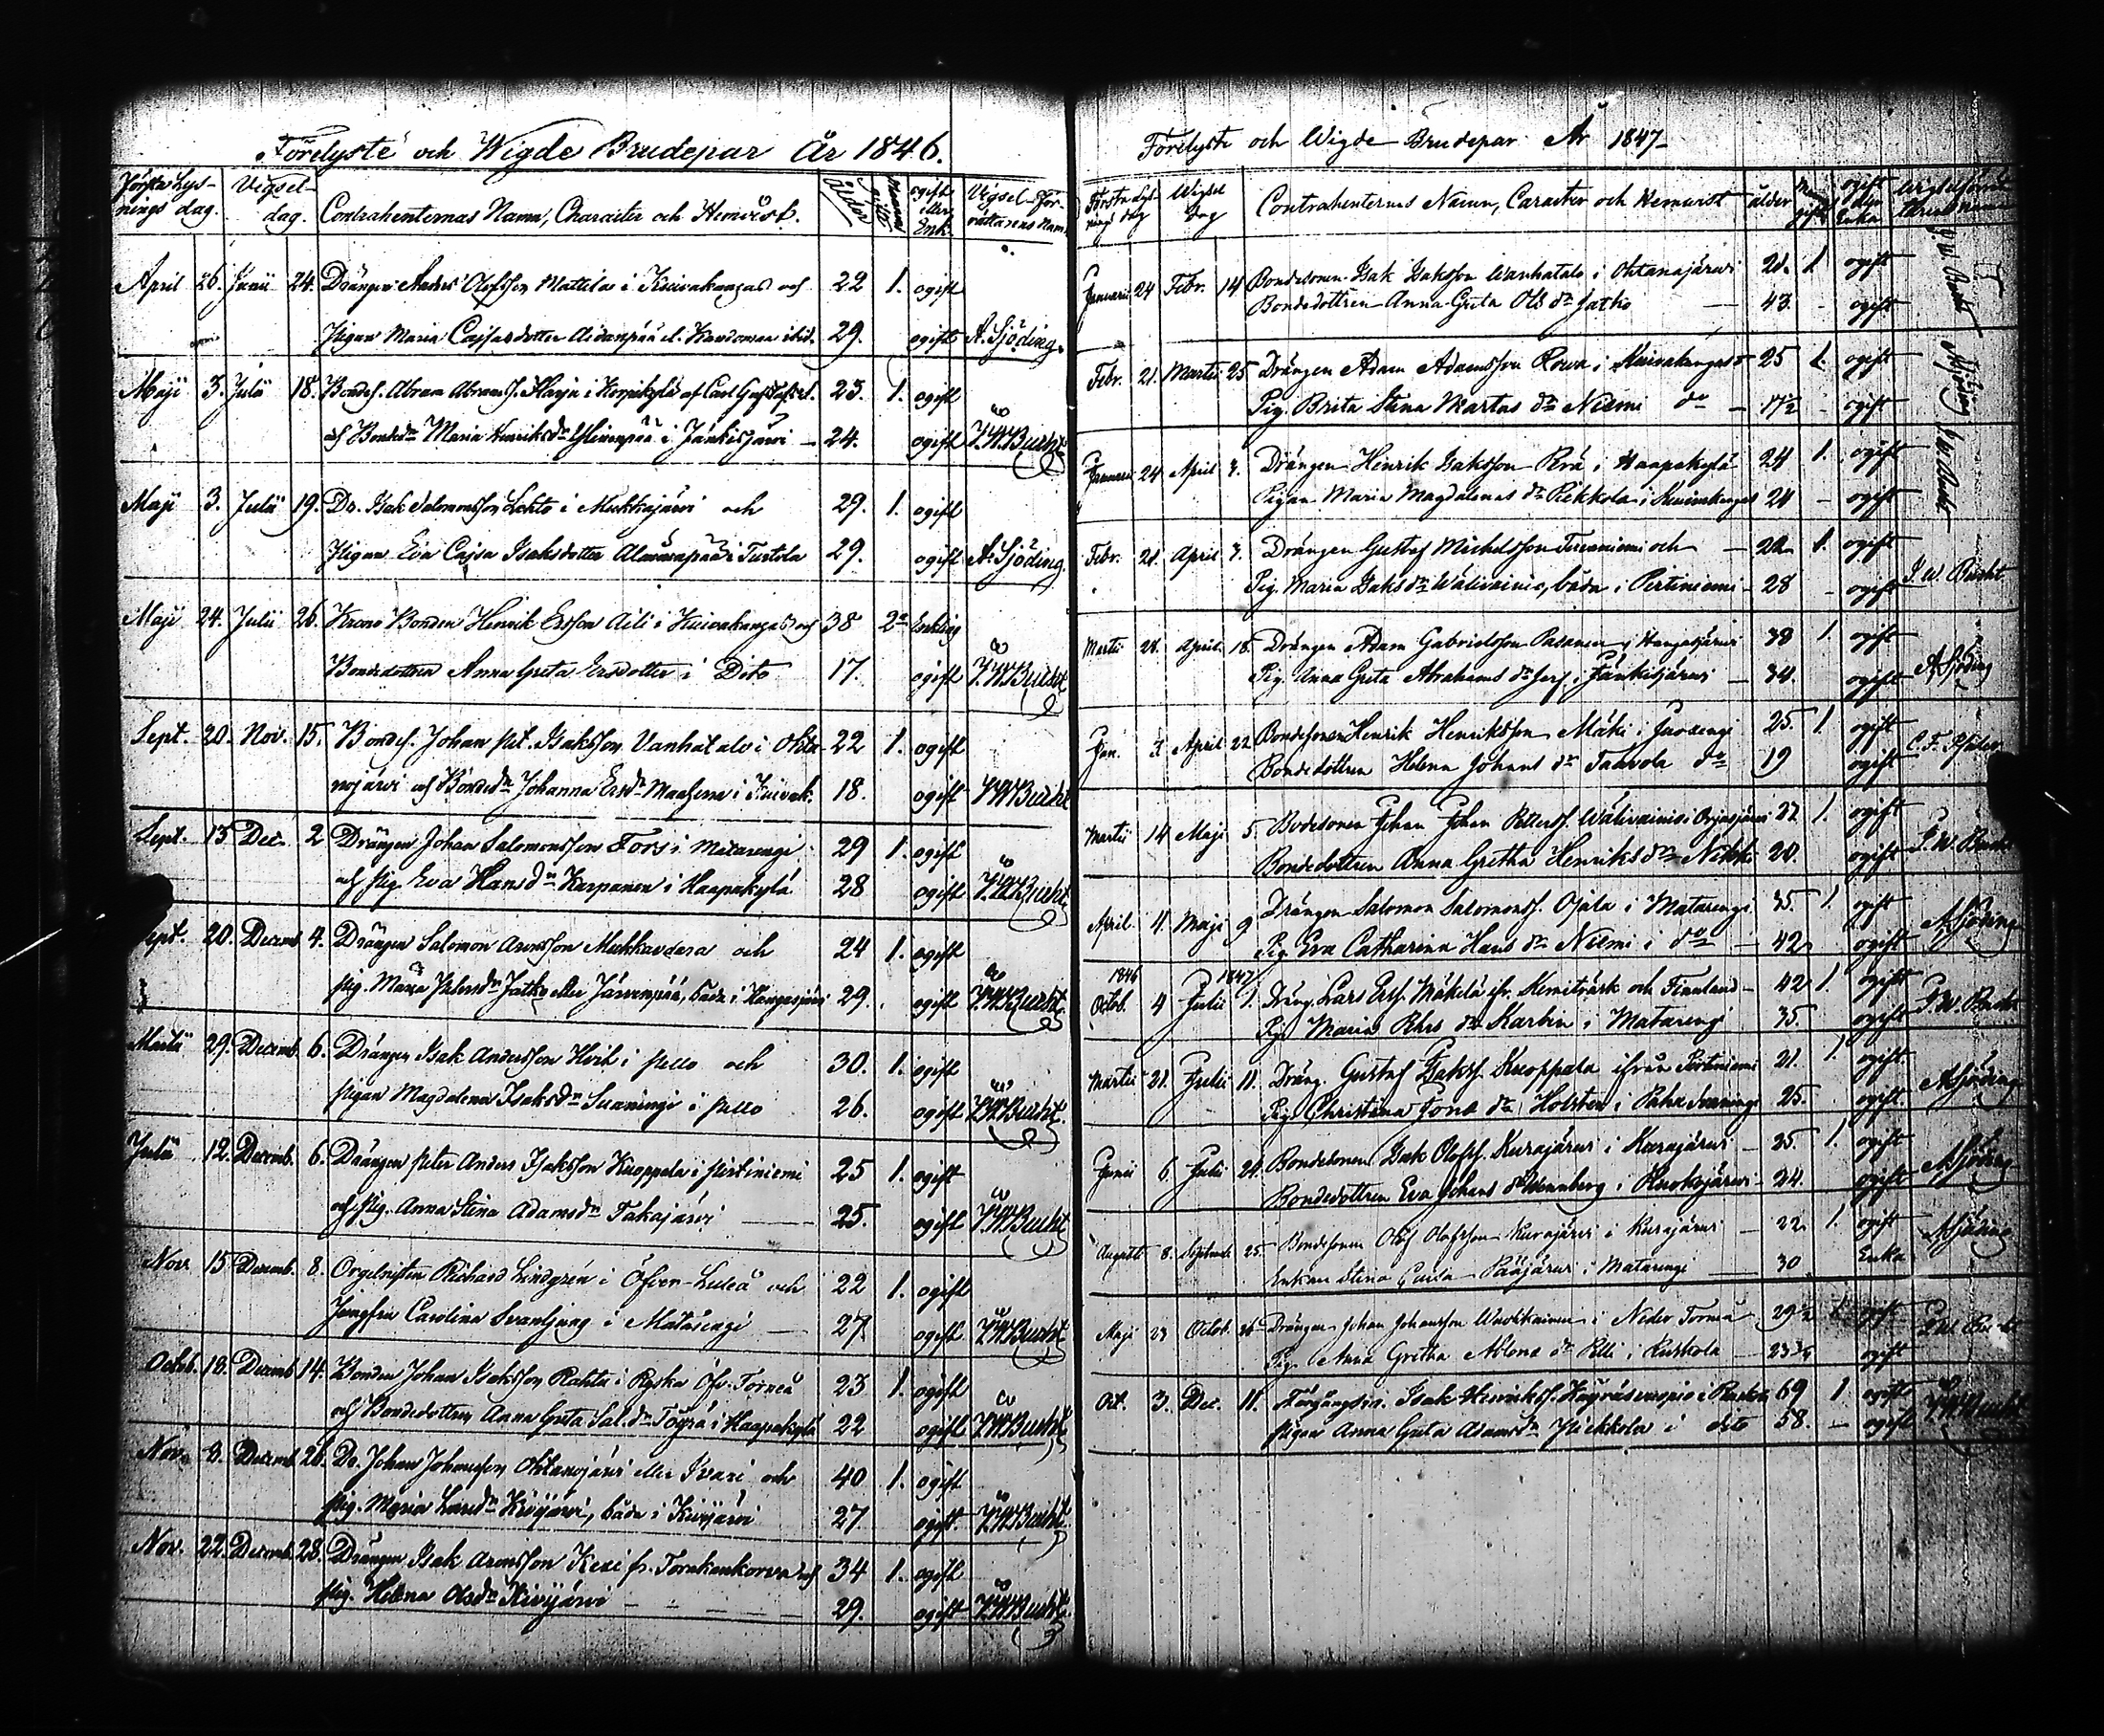 Förelyste och Wigde Brudepar År 1846.
Första Lys-
nings dag.
Vigsel-
dag.
Contrahenternas Namn, Character och Hemvist.
Ålder
Mannens gifte
ogift eller Enk.
Vigsel-För-
rättarens Namn
April 26. Junii 24. Drängen Anders Olofsson Mattila i Kuivakangas och 22 1. ogift
Pigan Maria Cajsasdotter Aidanpää el. ibid. 29. ogift A. Sjöding.
Maji 3. Julii 18. Bondes. Abram Abramss. Harju i Korpikylä af Carl Gustafs 23. 1. ogift
och Bondedn Maria Henriksdn Ylinenpää i Jänkisjärvi — 24. ogift J.W. Bucht
Maji 3. Julii 19. Dr. Isak Salomonsson Lehto i Mukkajärvi och 29. 1. ogift
Pigan Eva Cajsa Isaksdotter i Turtola 29. ogift A. Sjöding.
Maji 24. Julii 26. Krono Bonden Henrik Ersson Aili i Kuivakangas och 38 2a Enkling
Bondedottren Anna Greta Ersdotter i Dito 17. ogift J.W. Bucht
Sept. 20. Nov. 15. Bondes. Johan Pet. Isaksson Vanhatalo i Ohta- 22 1. ogift
najärvi och Bondedn Johanna Ersdn i Kuivak. 18. ogift J.W. Bucht
Sept. 13 Dec. 2 Drängen Johan Salomonsson Fors i Matarengi 29 1. ogift
och Pig. Eva Hansdn Karpanen i Haapakylä 28 ogift J.W. Bucht
Sept. 20. Decemb. 4. Drängen Salomon Aronsson Mukkavaara och 24 1. ogift
Pig. Maria Petersdn Jatko eller Järvenpää, båda i Hangasjärvi 29. ogift J.W. Bucht
Martii 29. Decemb. 6. Drängen Isak Andersson Kvik i Pello och 30. 1. ogift
pigan Magdalena Isaksdn Suaningi i Pello 26. ogift J.W. Bucht.
Julii 12. Decemb. 6. Drängen Peter Anders Isaksson Kuoppala i Pirtiniemi 25 1. ogift
och Pig. Anna Stina Adamsdn Takajärvi — 25. ogift J.W. Bucht
Nov. 15 Decemb. 8. Orgelnisten Richard Lindgrén i Öfver-Luleå och 22 1. ogift
Jungfru Carolina Svanljung i Matarengi — 27 ogift J.W. Bucht
Octob. 18. Decemb 14. Bonden Johan Isaksson Rahtu i Ryska Öfv. Torneå 23 1. ogift
och Bondedottren Anna Greta Sal.dn Töyrä i Haapakylä 22 ogift J.W. Bucht
Nov. 8. Decemb 26. Dr. Johan Johansson Ohtanajärvi eller Ivari och 40 1. ogift
Pig. Maria Larsdn Kivijärvi, båda i Kivijärvi 27 ogift J.W. Bucht
Nov. 22. Decemb. 28. Drängen Isak Aronsson Kexi fr. Torakankorva och 34 1. ogift
Pig. Helena Olsdn Kivijärvi — 29. ogift J.W. Bucht
Förelyste och Wigde Brudepar År 1847
Första Lys-
nings dag
Wigsel
dag
Contrahenternes Namn, Caracter och Hemwist
ålder
gifte
ogift
eller
Enka
Januarii 24 Febr. 14 Bondesonen Isak Isaksson Wanhatalo i Ohtanajärwi 21. 1 ogift
Bondedottren Anna Greta Ols dn Jatko — 43. - ogift
J.W. Bucht
Febr. 21. Martii 25 Drängen Adam Adamsson Rowa i Kuivakangas 25 1. ogift
Pig. Brita Stina Martas dn Niemi do — 17½ - ogift
A. Sjöding
Januarii 24 April 3. Drängen Henrik Isaksson Perä i Haapakylä 24 1. ogift
Pigan Maria Magdalenas dn Pikkola i Kuivakangas 24 - ogift
J.W. Bucht
Febr. 21. April 3. Drängen Gustaf Michelsson och — 22 1. ogift
Pig. Maria Isaks dn Wälivainio, båda i Pirtiniemi - 28 - ogift J.W. Bucht
Martii 28. April 18. Drängen Adam Gabrielsson Pasanen i Hangasjärwi 38 1. ogift
Pig. Anna Greta Abrahams dn i Jänkisjärwi — 34. ogift A. Sjöding
Jan. 3 April 22 Bondesonen Henrik Henriksson Mäki i Juoxengi 25. 1. ogift
Bondedottren Helena Johans dn do 19 ogift
Martii 14 Maji 5. Bodesonen Johan Johan Petterss. Wälivainio i 27 1. ogift
Bondedottren Anna Gretha Henriksdn Niskki 20. ogift J.W. Bucht
April 11. Maji 9 Drängen Salomon Salomonss. Ojala i Matarengi 35. 1. ogift
Pig Eva Catharina Hans dn Niemi i do — 42 ogift A. Sjöding
1846 1847
Octob. 4 Julii 1. Dräng. Lars Erss. Mäkelä ifr. Kemiträsk och Finnland — 42 1. ogift
Pig. Maria Pehrs dn Karbin i Matarengi 35. ogift J.W. Bucht
Martii 21. Julii 11. Dräng. Gustaf Isakss. Kuoppala ifrån Pirtiniemi 21. 1. ogift.
Pig. Christina Jons dn Holster i 25. ogift A. Sjöding
Junii 6. Julii 21. Bondesonen Isak Olofss. Kurajärwi i Kurajärwi — 35. 1. ogift
Bondedottren Eva Johans dn Wennberg i — 24. ogift A. Sjöding
Augusti 8. Septemb. 25. Bondesonen Olof Olofsson Kurajärwi i Kurajärwi — 22. 1. ogift
Enkan Stina Caisa Pääjärwi i Matarengi — 30 Enka A. Sjöding
Maji 23 Octob. 26 Drängen Johan Johansson i Neder Torneå 29½ 1 ogift
Pig. Anna Gretha dn i Ruskola — 23¾ ogift J.W. Bucht
Oct. 3. Dec. 11. Isak Henrikss. i 69 1. ogift
Pigan Anna Greta Adamsdn Pickkola i dito 58. — ogift J.W. Bucht